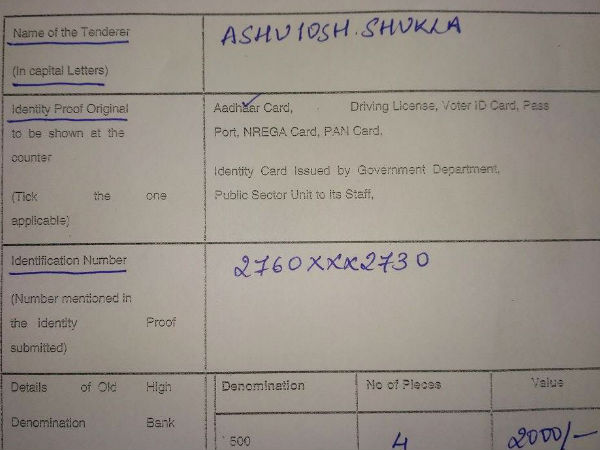 Name of the Tenderer
(In capital Letters)
ASHUTOSH. SHUKLA
Identity Proof Original
to be shown at the
counter
(Tick the one
applicable)
Aadhaar Card, Driving License, Voter ID Card, Pass
Port, NREGA Card, PAN Card,
Identity Card Issued by Government Department,
Public Sector Unit to its Staff,
Identification Number
(Number mentioned in
the identity Proof
submitted)
2760XXX2730
Details of Old High
Denomination Bank
Denomination No of Pieces Value
500 4 2000/-